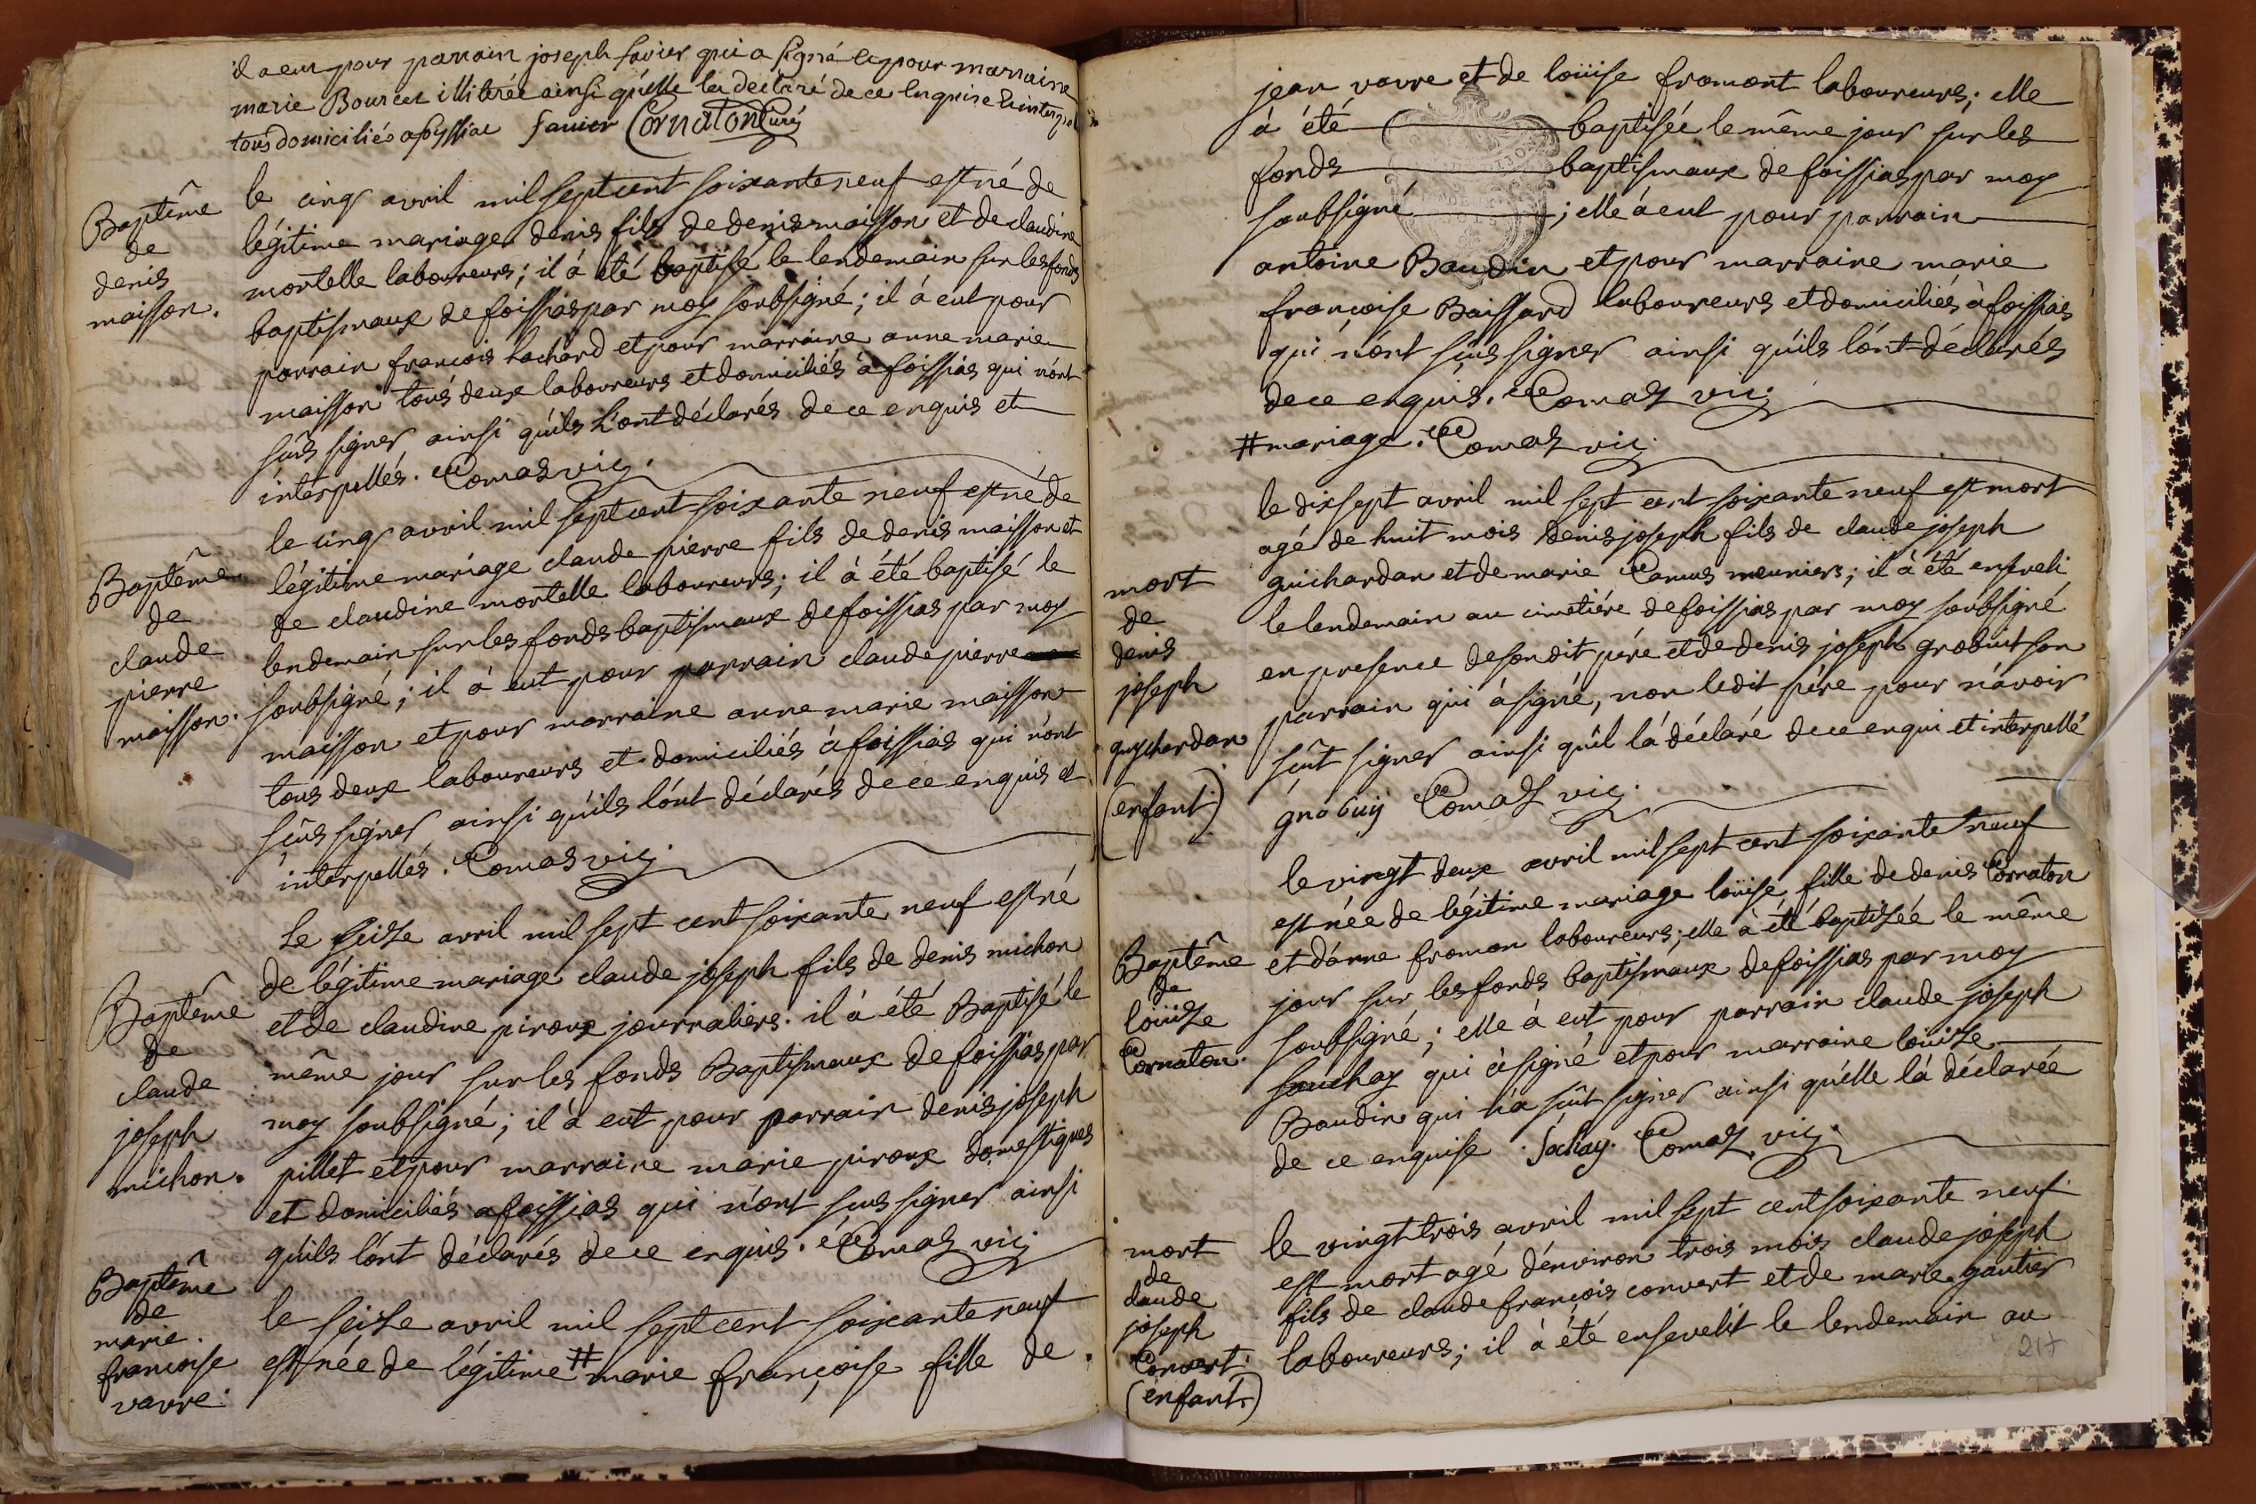 il a eut pour parrain joseph favier qui a signé et pour marraine
marie Bourcet illitérée ainsi qu'elle la déclaré de ce enquise et interpel
tous domiciliés a foyssiac favier Cornaton Curé
Baptême
de
denis
maisson.
le cinq avril mil sept cent soixante neuf est né de
légitime mariage denis fils de denis maisson et de claudine
mortelle laboureurs; il à été baptisé le lendemain sur les fonds
baptismaux de foissias par moy soubsigné; il à eut pour
parrain françois lachard et pour marraine anne marie
maisson tous deux laboureurs et domiciliés à foissias qui n'ont
sçus signer ainsi qu'ils l'ont déclarés de ce enquis et
interpellés. Comas vic.
Baptême
de
claude
pierre
maisson.
le cinq avril mil sept cent soixante neuf est né de
légitime mariage claude pierre fils de denis maisson et
de claudine mortelle laboureurs; il à été baptisé le
lendemain sur les fonds baptismaux de foissias par moy
soubsigné; il à eut pour parrain claude pierre
maisson et pour marraine anne marie maisson
tous deux laboureurs et domiciliés à foissias qui n'ont
sçus signer ainsi qu'ils l'ont déclarés de ce enquis et
interpellés. Comas vic.
Baptême
de
claude
joseph
michon.
Le seize avril mil sept cent soixante neuf est né
de légitime mariage claude joseph fils de denis michon
et de claudine piroux journaliers. il à été Baptisé le
même jour sur les fonds Baptismaux de foissias par
moy soubsigné; il à eut pour parrain denis joseph
pillet et pour marraine marie piroux domestiques
et domiciliés a foissias qui n'ont sçus signer ainsi
qu'ils l'ont déclarés de ce enquis. Comas vic.
Baptême
de
marie.
francoise
vavre.
le seize avril mil sept cent soixante neuf
est née de légitime # marie françoise fille de
jean vavre et de loüise fromont laboureurs; elle
à été baptisée le même jour sur les
fonds baptismaux de foissias par moy
soubsigné ; elle à eut pour parrain
antoine Baudin et pour marraine marie
françoise Baissard laboureurs et domiciliés à foissias
qui n'ont sçus signer ainsi qu'ils l'ont déclarés
de ce enquis. Comas vic.
# mariage. Comas vic.
mort
de
denis
joseph
guichardan
(enfant)
le dix sept avril mil sept cent soixante neuf est mort
agé de huit mois denis joseph fils de claude joseph
guichardan et de marie Camus meuniers; il à été enseveli
le lendemain au cimetiére de foissias par moy soubsigné
en presence de son dit pére et de denis joseph grobuit son
parrain qui à signé, non ledit pére pour n'avoir
sçut signer ainsi qu'il l'à déclaré de ce enqui et interpellé
grobuy Comas vic.
Baptême
de
loüize
Cornaton.
le vingt deux avril mil sept cent soixante neuf
est née de légitime mariage loüise fille de denis Cornaton
et d'anne fromon laboureurs; elle à été baptizée le même
jour sur les fonds baptismaux de foissias par moy
soubsigné; elle à eut pour parrain claude joseph
souchay qui à signé et pour marraine loüize
Baudin qui n'a sçut signer ainsi qu'elle l'à déclarée
de ce enquise. sochay. Comas vic.
mort
de
claude
joseph
Convert.
(enfant)
le vingt trois avril mil sept cent soixante neuf
est mort agé d'environ trois mois claude joseph
fils de claude françois convert et de marie gautier
laboureurs; il à été ensevelit le lendemain au
217